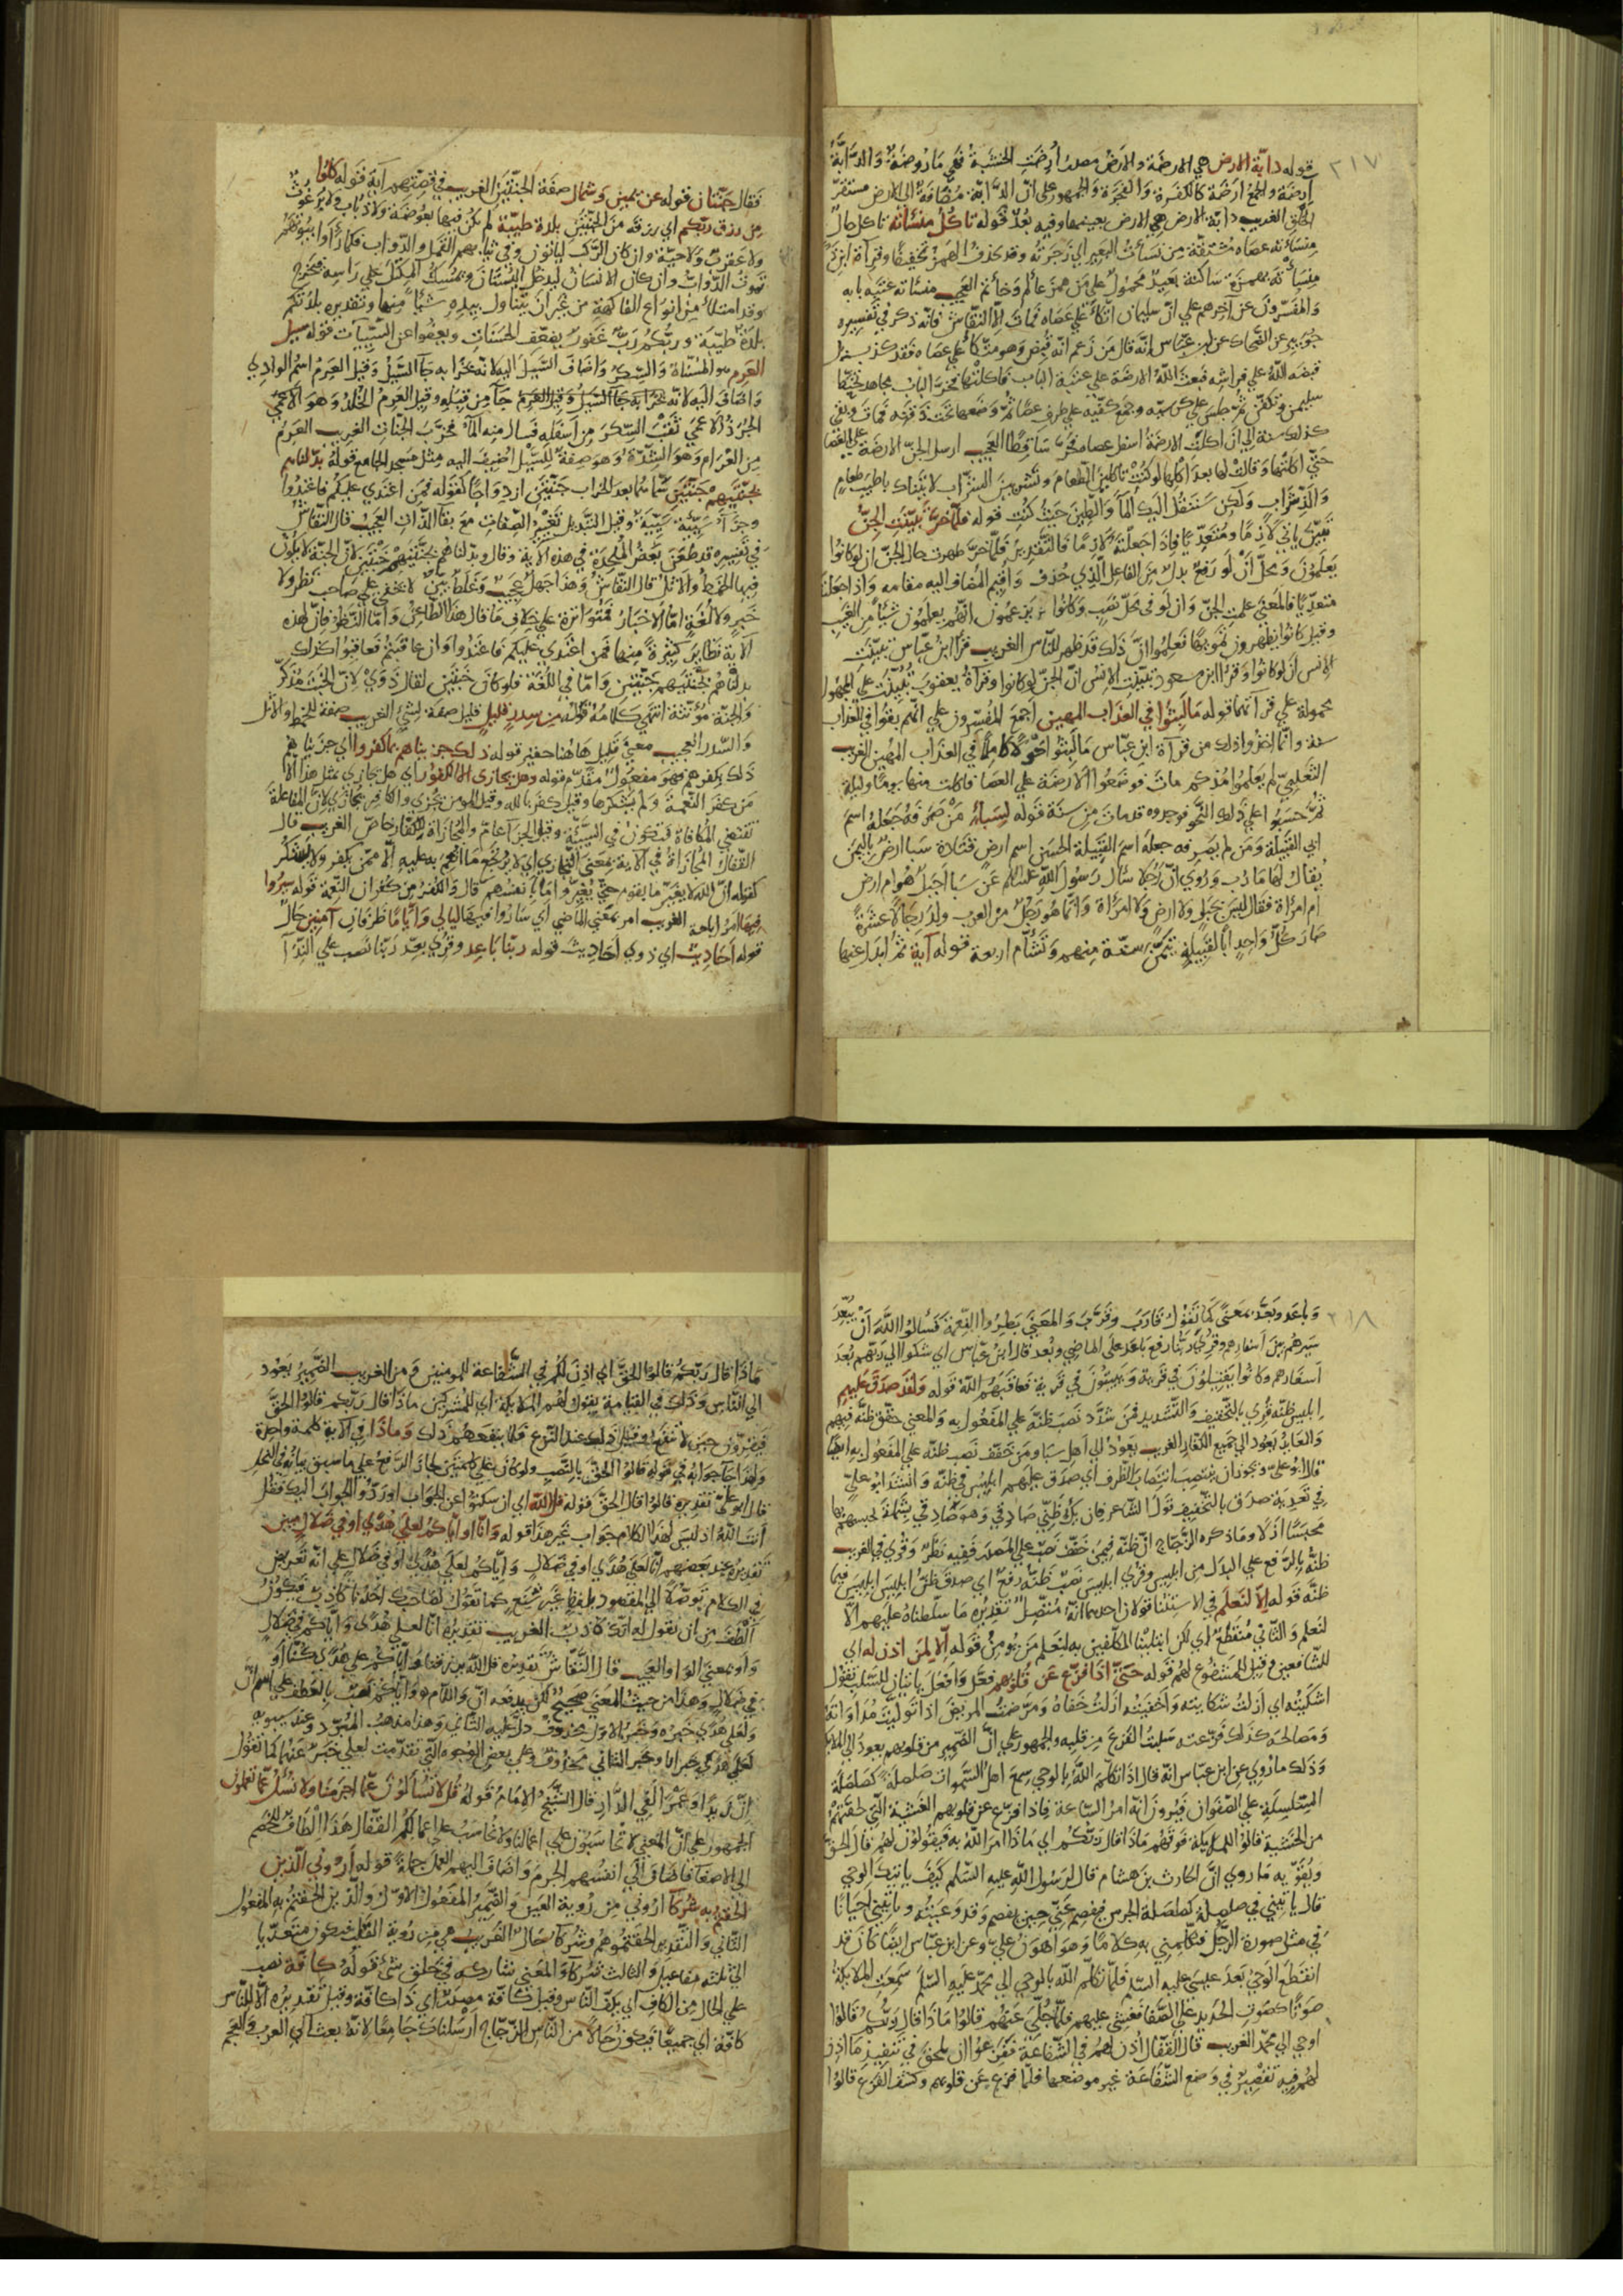 ٢١٧
قوله دابّة الارض هي الارضة والارض مصدر أُرِضَتِ الخشبة فهي مأروضة والدابّة
أرضة والجمع ارضة كالكفرة والفجرة والجمهور على انّ الدّابّة مضافة الى الارض مستقرّ
الخلق الغريب دابّة الارض هي الارض بعينها وفيه بعد قوله تأكل منسأته تاكل حال
منسأته عصاه مشتقّة من نسأت البعير اي زجرته وقد تحذف الهمزة تخفيفا وقرأة ابن
منسأته بهمزة ساكنة بعيد محمول على من همز عألم وخأتم العجيب منسأته عتبة بابه
والمفسّرون عن آخرهم على انّ سليمان اتّكأ على عصاه فمات الّا النقّاش فانّه ذكر في تفسيره
جويبر عن الضّحاك عن ابن عبّاس انّه قال من زعم انّه قبض وهو متّكأ على عصاه فقد كذب بل
قبضه الله على فراشه فبعث الله الارضة على عتبة الباب فاكلتها فخرّ الباب مجاهد
سليمن وتكفّن ثمّ جلس على كرسيّه وجمع كفّيه على طرف عصا ثمّ وضعها تحت ذقنه فمات وبقي
كذلك سنة الى ان اكلت الارضة اسفل عصاه فخرّ ساقطا العجيب ارسل الجنّ الارضة على العصا
حتّى اكلتها وقالت لها بعد اكلها لو كنت تاكلين الطّعام وتشربين الشّراب لاتيناك باطيب طعام
والذّ شراب ولكن سننقل اليك الماء والطين حيث كنت قوله فلمّا خرّ تبيّنت الجنّ
تبيّن ياتي لازما ومتعدّيا فاذا جعلته لازما فالتّقدير فلمّا خرّ ظهرت حال الجنّ ان لو كانوا
يعلمون ومحلّ ان لو رفع بدل من الفاعل الّذي حذف واقيم المضاف اليه مقامه واذا جعلتا
متعدّيا فالمعنى علمت الجنّ وان لو في محلّ نصب وكانوا يزعمون انّهم يعلمون شيئا من الغيب
وقيل كانوا يظهرون تمويها فعلموا انّ ذلك قد ظهر للنّاس الغريب قرأ ابن عبّاس تبيّنت
الانس ان لو كانوا وقرأ ابن مسعود تبيّنت الانس انّ الجنّ لو كانوا وقرأة يعقوب تبيّنت على المجهول
محمولة على قرأتهما قوله ما لبثوا في العذاب المهين اجمع المفسّرون على انّهم بقوا في العذاب
سنة وانّما اخذوا ذلك من قرأة ابن عبّاس ما لبثوا حولا كاملا في العذاب المهين الغريب
الثعلبيّ لم يعلموا مذ كم مات فوضعوا الارضة على العصا فاكلت منها يوما وليلة
ثمّ حسبوا على ذلك النّحو فوجدوه قد مات من سنة قوله لسبأ من صرفه جعله اسم
ابي القبيلة ومن لم يصرفه جعله اسم القبيلة الحسن اسم ارض قتادة سبأ ارض باليمن
يقال لها مأرب وروي انّ رجلا سأل رسول الله عليه السلام عن سبأ اجبل هو ام ارض
ام امرأة فقال ليس بجبل ولا ارض ولا امرأة وانّما هو رجل من العرب ولد رجالا عشرة
صار كلّ واحد ابا لقبيلة تيمّن ستّة منهم وتشأم اربعة قوله آية ثمّ ابدل عنها
فقال جنّتان قوله عن يمين وشمال صفة الجنّتين الغريب في قصّتهم آية قوله كلوا
من رزق ربّكم اي رزقه من الجنّتين بلدة طيّبة لم يكن فيها بعوضة ولا ذباب ولا برغوث
ولا عقرب ولا حيّة وان كان الرّكب لياتون وفي ثيابهم القمل والدّواب فكما رأوا بيوتهم
تموت الدّواب وان كان الانسان ليدخل البستان ويمسك المكتل على رأسه فيخرج
وقد امتلأ من انواع الفاكهة من غير ان يتناول بيده شيئا منها وتقديره بلدتكم
بلدة طيّبة وربّكم ربّ غفور يضعّف الحسنات ويعفو عن السّيّيات قوله سيل
العرم هو المسنّاة والسّكر واضاف السّيل اليه لانّه بخرابه جآ السّيل وقيل العرم اسم الوادي
واضاف اليه لانّه جآ من قبله وقيل العرم الخلد وهو الاعمى
الجرذ الاعمى ثقب السّكر من اسفله فسال منه الماء فخرّب الجنّات الغريب العرم
من العرام وهو الشّدّة وهو صفة للسّيل اضيف اليه مثل مسجد الجامع قوله بدّلناهم
بجنّتيهم جنّتين سمّاهما بعد الخراب جنّتين ازدواجا كقوله فمن اعتدى عليكم فاعتدوا
وجزآء سيّئة سيّئة وقيل التّبديل تغيير الصّفات مع بقا الذّات العجيب قال النّقّاش
في تفسيره قد طعن بعض الملحدة في هذه الآية وقال وبدّلناهم بجنّتيهم خبتين لانّ الجنّة لا يكون
فيها الخمط والاثل قال النّقّاش وهذا جهل عجيب وغلط بيّن لا يخفى على صاحب نظر ولا
خبر ولا لغة امّا الاخبار فمتواترة على خلاف ما قال هذا الطّاعن وامّا النّظر فانّ لهذه
الآية نظاير كثيرة منها فمن اعتدى عليكم فاعتدوا وان عاقبتم فعاقبوا كذلك
بدلناهم بجنّتيهم جنّتين وامّا في اللّغة فلو كان خبتين لقال ذوي لانّ الخبت مذكّر
والجنّة مؤنّثة انتهى كلامه قوله من سدر قليل قليل صفة لشيء الغريب صفة للخمط والاثل
والسّدر العجيب معنى قليل هاهنا حقير قوله ذلك جزيناهم بما كفروا اي جزيناهم
ذلك بكفرهم فهو مفعول مقدّم قوله وهل يجازى الّا الكفور اي هل يجازى بمثل هذا الّا
من كفر النّعمة ولم يشكرها وقيل كفر بالله وقيل المؤمن يجزى والكافر يجازى لانّ المفاعلة
تقتضي المكافاة فتكون في السّيّئة وقيل الجزآ عامّ والمجازاة للكفّار خاصّ الغريب قال
القفّال المجازاة في الآية بمعنى التّجازي اي لا يرتجع ما انعم به عليه الّا ممّن يكفر ولا يشكر
كقوله انّ الله لا يغيّر ما بقوم حتّى يغيّروا ما بانفسهم قال والكفر من كفران النّعمة قوله سيروا
فيها امر اباحة الغريب امر بمعنى الماضي اي ساروا فيها ليالي وايّاما ظرفان آمنين حال
قوله احاديث اي ذوي احاديث قوله ربّنا باعد وقرئ بعّد ربّنا نصب على النّدآ
٢١٨
وباعد وبعّد بمعنى كما تقول قارب وقرّب والمعنى بطروا النّعمة فسألوا الله ان يبعّد
سيرهم بين اسفارهم وقرئ ربّنا رفع باعد على الماضي وبعد قال ابن عبّاس اي شكوا الى ربّهم بعد
اسفارهم وكانوا يقيلون في قرية ويبيتون في قرية فعاقبهم الله قوله ولقد صدق عليهم
ابليس ظنّه قرئ بالتّخفيف والتّشديد فمن شدّد نصب ظنّه على المفعول به والمعنى حقّق ظنّه فيهم
والعايد يعود الى جميع الكفّار الغريب يعود الى اهل سبأ ومن خفّف نصب ظنّه على المفعول به ايضا
قال ابو عليّ ويجوز ان ينتصب انتصاب الظّرف اي صدق عليهم ابليس في ظنّه وانشد ابو عليّ
في تعدية صدق بالتّخفيف قول الشّاعر فان يك ظنّي صادقي وهو صادقي بشملة يحبسهم بها
محبسا ازلا وما ذكره الزّجّاج انّ ظنّه فيمن خفّف نصب على المصدر ففيه نظر وقرئ في الغريب
ظنّه بالرّفع على البدل من ابليس وقرئ ابليس نصب ظنّه رفع اي صدق ظنّ ابليس ابليس فيما
ظنّه قوله الّا لنعلم في الاستثنا قولان احدهما انّه متّصل تقديره ما سلّطناه عليهم الّا
لنعلم والثّاني منقطع اي لكن ابتلينا المكلّفين به لنعلم من يؤمن قوله الّا لمن اذن له اي
للشّافعين وقيل للمشفوع لهم قوله حتّى اذا فزّع عن قلوبهم فعّل وافعل ياتيان للسّلب تقول
اشكيته اي ازلت شكايته واخفيته ازلت خفاه ومرّضت المريض اذا تولّيت مداواته
ومصالحه كذلك فزّعته سلبت الفزع من قلبه والجمهور على انّ الضّمير من قلوبهم يعود الى الملايكة
وذلك ما روي عن ابن عبّاس انّه قال اذا تكلّم الله بالوحي سمع اهل السّموات صلصلة كصلصلة
السّلسلة على الصّفوان فيرون انّه امر السّاعة فاذا فزّع عن قلوبهم الغشية الّتي لحقتهم
من الخشية قالوا للملايكة فوقهم ماذا قال ربّكم اي ماذا امر الله به فيقولون لهم قال الحقّ
ويقوّيه ما روي انّ الحارث بن هشام قال لرسول الله عليه السّلم كيف ياتيك الوحي
قال ياتيني في صلصلة كصلصلة الجرس فيفصم عنّي حين يفصم وقد وعيته وياتيني احيانا
في مثل صورة الرّجل فيكلّمني به كلاما وهو اهون عليّ وعن ابن عبّاس ايضا كان قد
انقطع الوحي بعد عيسى عليه السّلم فلمّا تكلّم الله بالوحي الى محمّد عليه السّلم سمعت الملائكة
صوتا كصوت الحديد على الصّفا فغشي عليهم فلمّا جلّي عنهم قالوا ماذا قال ربّكم قالوا
اوحي الى محمّد الغريب قال القفّال أذن لهم في الشّفاعة ففزعوا ان يلحق في تنفيذ ما اذن
لهم فيه تقصير في وضع الشّفاعة غير موضعها فلمّا فزّع عن قلوبهم وكشف الفزع قالوا
ماذا قال ربّكم قالوا الحقّ اي اذن لكم في الشّفاعة للمومنين ومن الغريب الضّمير يعود
الى النّاس وذلك في القيامة يقول لهم الملايكة اي للمشركين ماذا قال ربّكم قالوا الحقّ
فيقرّون حين لا تنفعهم وقيل ذلك عند النّزع فلا ينفعهم ذلك وماذا في الآية كلمة واحدة
ولهذا جآ جوابه في قوله قالوا الحقّ بالنّصب ولو كان على كلمتين لجاز الرّفع على ما سبق بيانه في النحل
قال ابو عليّ تقديره قالوا قال الحقّ قوله قل الله اي ان سكتوا عن الجواب او ردّوا الجواب اليك فقل
انت الله اذ ليس لهذا الكلام جواب غير هذا قوله وانّا او ايّاكم لعلى هدى او في ضلال مبين
تقديره عند بعضهم انّا لعلى هدى او في ضلال وايّاكم لعلى هدى او في ضلال على انّه تعريض
في الكلام توصّلا الى المقصود بلفظ غير شنع كما تقول لصاحبك احدنا كاذب فيكون
الطف من ان تقول له انّك كاذب الغريب تقديره انّا لعلى هدى وايّاكم في ضلال
واو بمعنى الواو العجيب قال النّقّاش تقديره قل الله يرزقنا وايّاكم على هدى كنّا او
في ضلال وهذا من حيث المعنى صحيح لكن يدفعه انّ واللّام وايّاكم نصب بالعطف على اسم انّ
ولعلى هدى خبره وخبر الاوّل محذوف دلّ عليه الثّاني وهذا مذهب المبرّد وعند سيبويه
لعلى هدى خبر انّا وخبر الثّاني محذوف وعلى بعض الوجوه الّتي تقدّمت لعلى خبر عنهما كما تقول
انّ زيدا وعمرا لفي الدّار قال الشّيخ الامام قوله قل لا تسألون عمّا اجرمنا ولا نسأل عمّا تعملون
الجمهور على انّ المعنى لا تحاسبون على اعمالنا ولا نحاسب على اعمالكم القفّال هذا الطاف للخصم
الى الاصغآ فاضاف الى انفسهم الجرم واضاف اليهم العمل جملة قوله اروني الّذين
الحقتم به شركآ اروني من رؤية العين والضّمير المفعول الاوّل والّذين الحقتم به المفعول
الثّاني والتّقدير الحقتموهم وشركآ حال الغريب هي من رؤية القلب فيكون متعدّيا
الى ثلثة مفاعيل والثالث شركآ والمعنى شاركه في خلق شيء قوله كافّة نصب
على الحال من الكاف اي يكفّ النّاس وقيل كافّة مصدر اي ذا كافّة وقيل تقديره الّا للنّاس
كافّة اي جميعا فيكون حالا من النّاس الزّجّاج ارسلناك جامعا لانّه بعث الى العرب والعجم